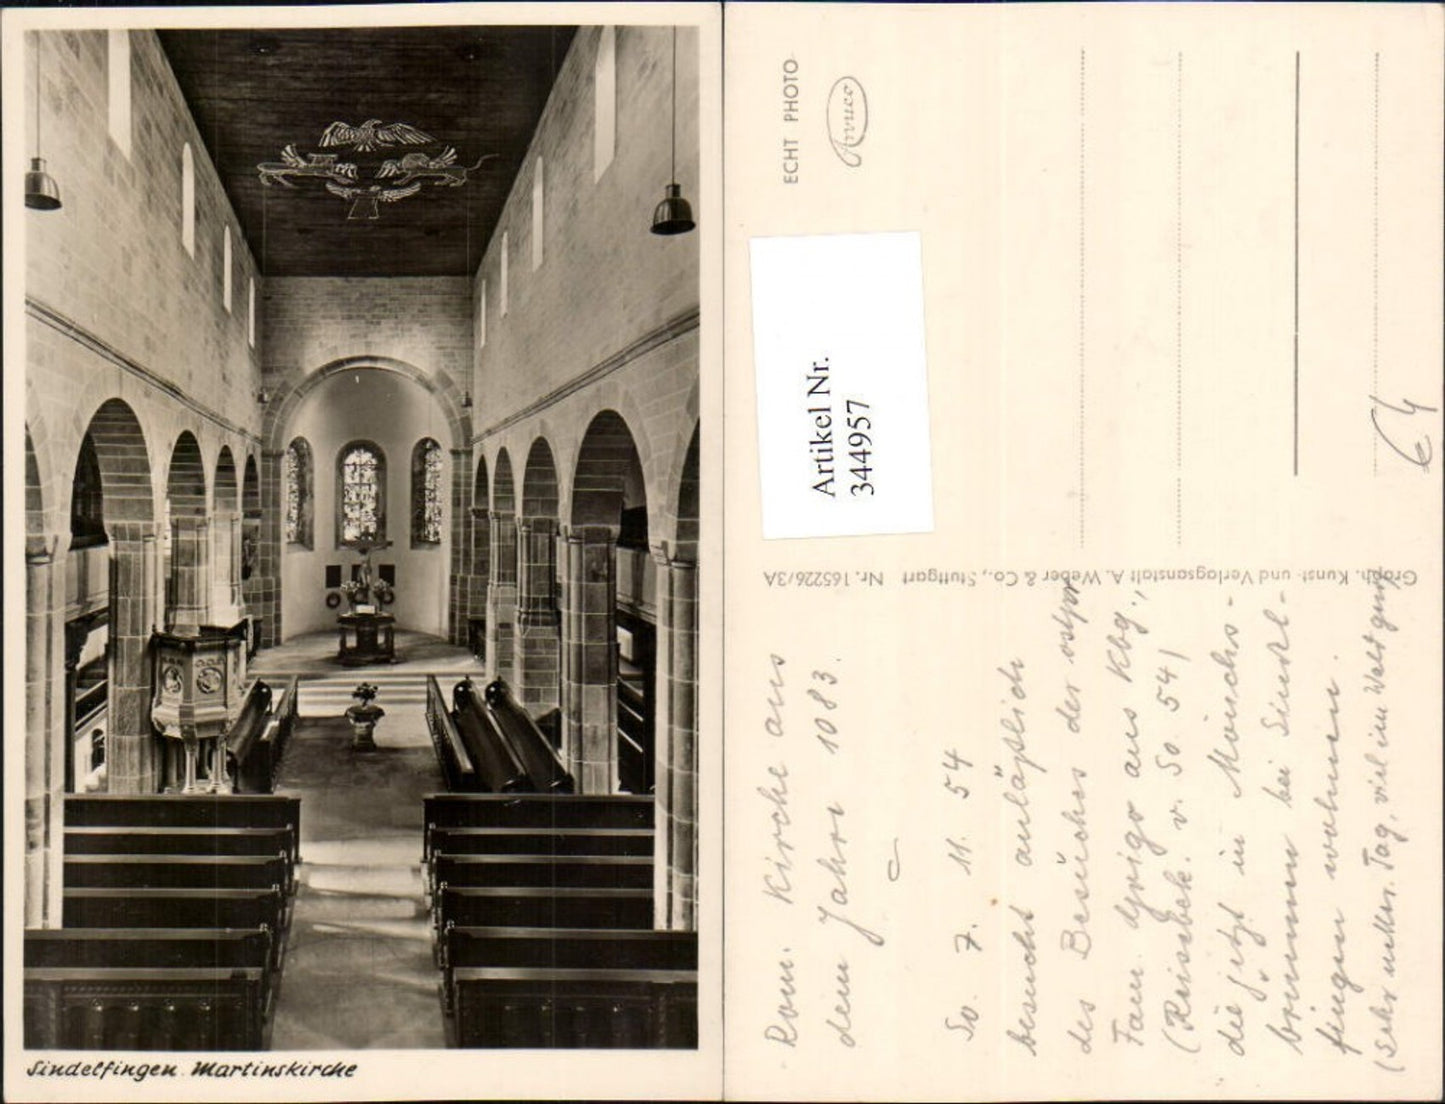 Sindelfingen. Martinskirche
ECHT PHOTO
Arvuco
Artikel Nr.
344957
Graph. Kunst- und Verlagsanstalt A. Weber & Co., Stuttgart Nr. 165226/3A
€ 4
Rom. Kirche aus
dem Jahre 1083.
So. 7. 11. 54
besucht anläßlich
des Besuches der ostpr
Fam. aus Kbg.,
(Reisebek. v. So. 54)
die jetzt in Mönchs-
brunnen bei Sindel-
fingen wohnen.
(Sehr Tag, viel im Wald